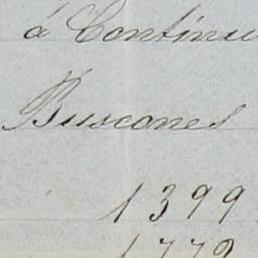 á Continu
Buscones
1399
1772